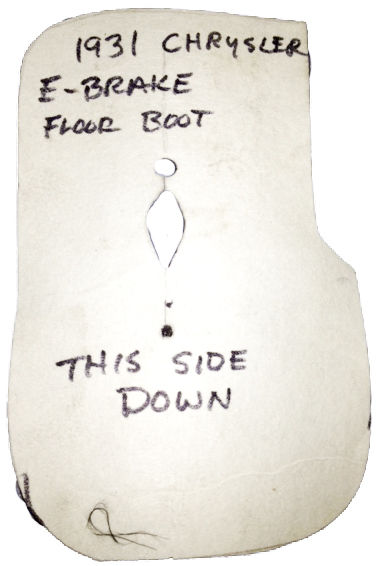 1931 CHRYSLER
E-BRAKE
FLOOR BOOT
THIS SIDE
DOWN